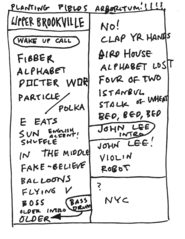 PLANTING FIELDS ARBORETUM!!!!
UPPER BROOKVILLE
WAKE UP CALL
FIBBER
ALPHABET
DOCTER WORM
PARTICLE/
POLKA
E EATS
SUN ENGLISH ACCENT!
SHUFFLE
IN THE MIDDLE
FAKE-BELIEVE
BALLOONS
FLYING V
BOSS BASS DRUM
OLDER INTRO
OLDER
NO!
CLAP YR HANDS
BIRD HOUSE
ALPHABET LOST
FOUR OF TWO
ISTANBUL
STALK OF WHEAT
BED, BED, BED
JOHN LEE INTRO
JOHN LEE!
VIOLIN
ROBOT
?
NYC